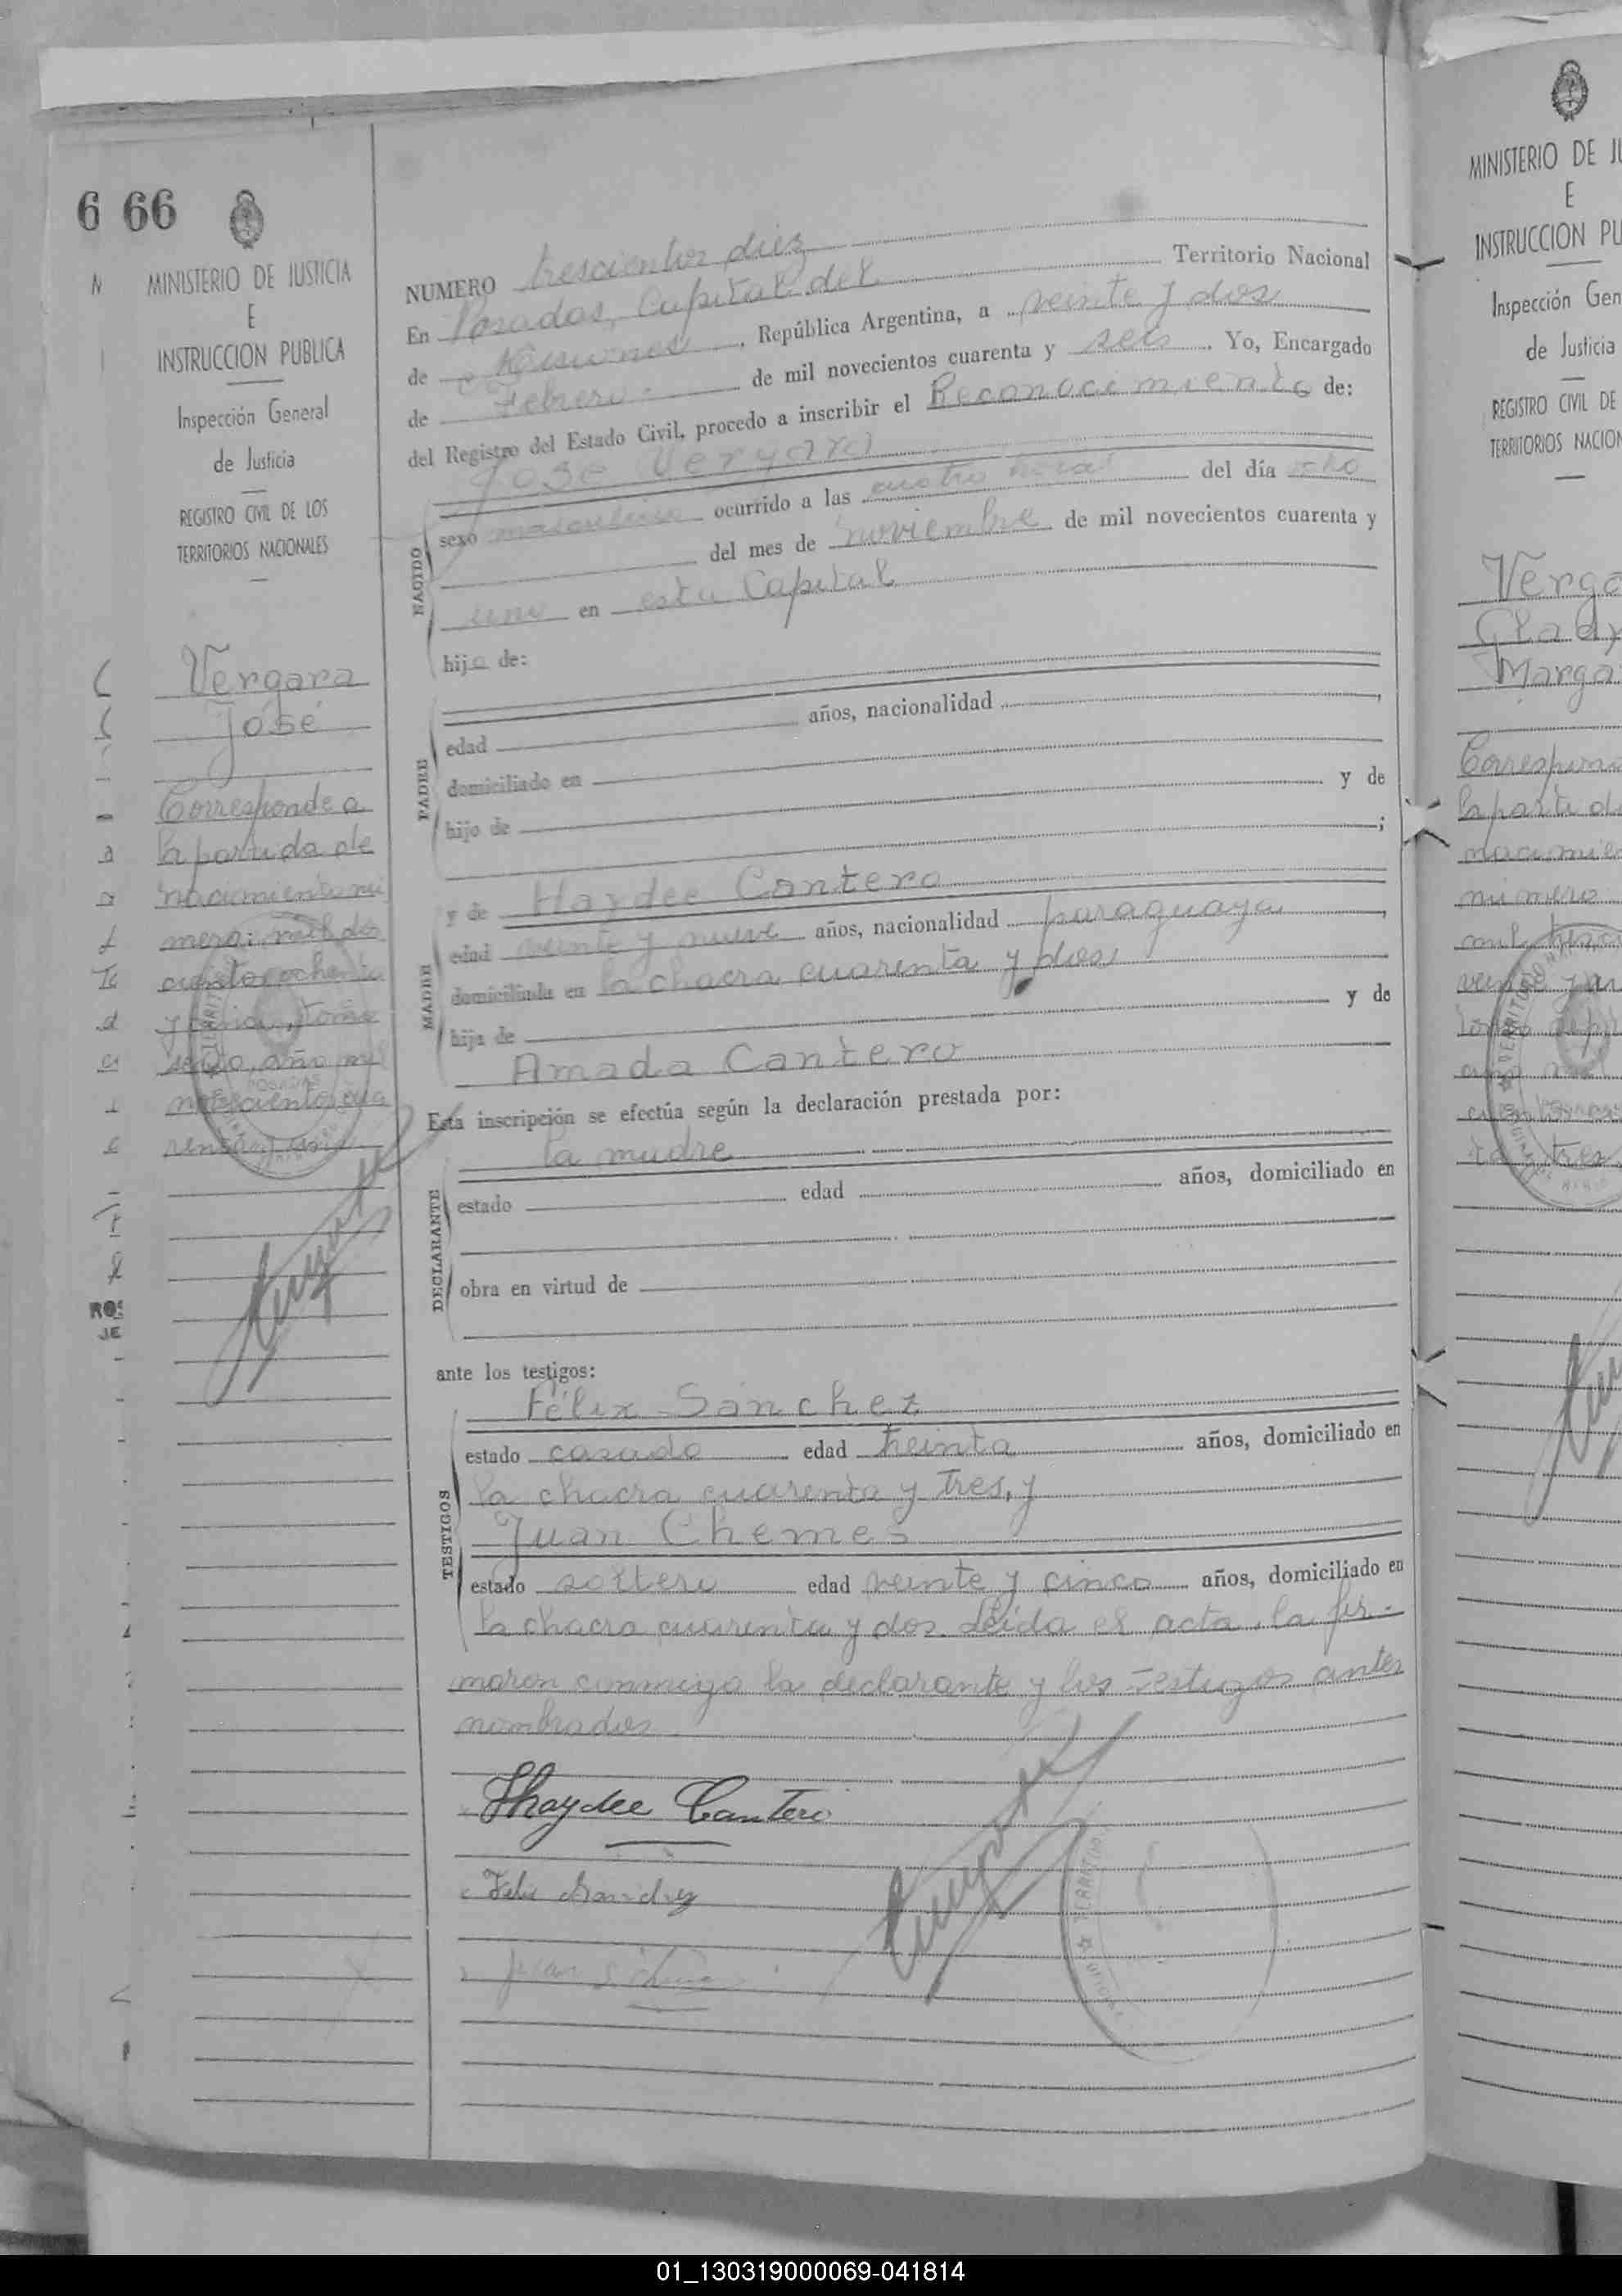 6 66
MINISTERIO DE JUSTICIA
E
INSTRUCCION PUBLICA
Inspección General
de Justicia
REGISTRO CIVIL DE LOS
TERRITORIOS NACIONALES
Vergara
José
Corresponde a
la partida de
nacimiento nú
mero: mil dos
ciento ochenta
y una, tomo
año mil
novecientos cua
renta y uno
NUMERO trescientos diez
En Posadas, Capital del Territorio Nacional
de Misiones, República Argentina, a veinte y dos
de Febrero de mil novecientos cuarenta y seis. Yo, Encargado
del Registro del Estado Civil, procedo a inscribir el Reconocimiento de:
José Vergara
NACIDO
sexo masculino ocurrido a las cuatro horas del día ocho
del mes de noviembre de mil novecientos cuarenta y
uno en esta Capital
hijo de:
PADRE
edad años, nacionalidad ,
domiciliado en
hijo de y de
;
MADRE
y de Haydee Cantero
edad veinte y nueve años, nacionalidad paraguaya,
domiciliada en la chacra cuarenta y dos
hija de y de
Amada Cantero
Esta inscripción se efectúa según la declaración prestada por:
la madre
DECLARANTE
estado edad años, domiciliado en
obra en virtud de
ante los testigos:
Félix Sánchez
TESTIGOS
estado casado edad treinta años, domiciliado en
la chacra cuarenta y tres, y
Juan Chemes
estado soltero edad veinte y cinco años, domiciliado en
la chacra cuarenta y dos. Leída el acta, la fir-
maron conmigo la declarante y los testigos antes
nombrados
Haydee Cantero
Felix Sanchez
MINISTERIO DE JU
E
INSTRUCCION PU
Inspección Gen
de Justicia
REGISTRO CIVIL DE
TERRITORIOS NACION
Verga
Glady
Marga
Correspon
la parti d
nacimien
número
01_130319000069-041814